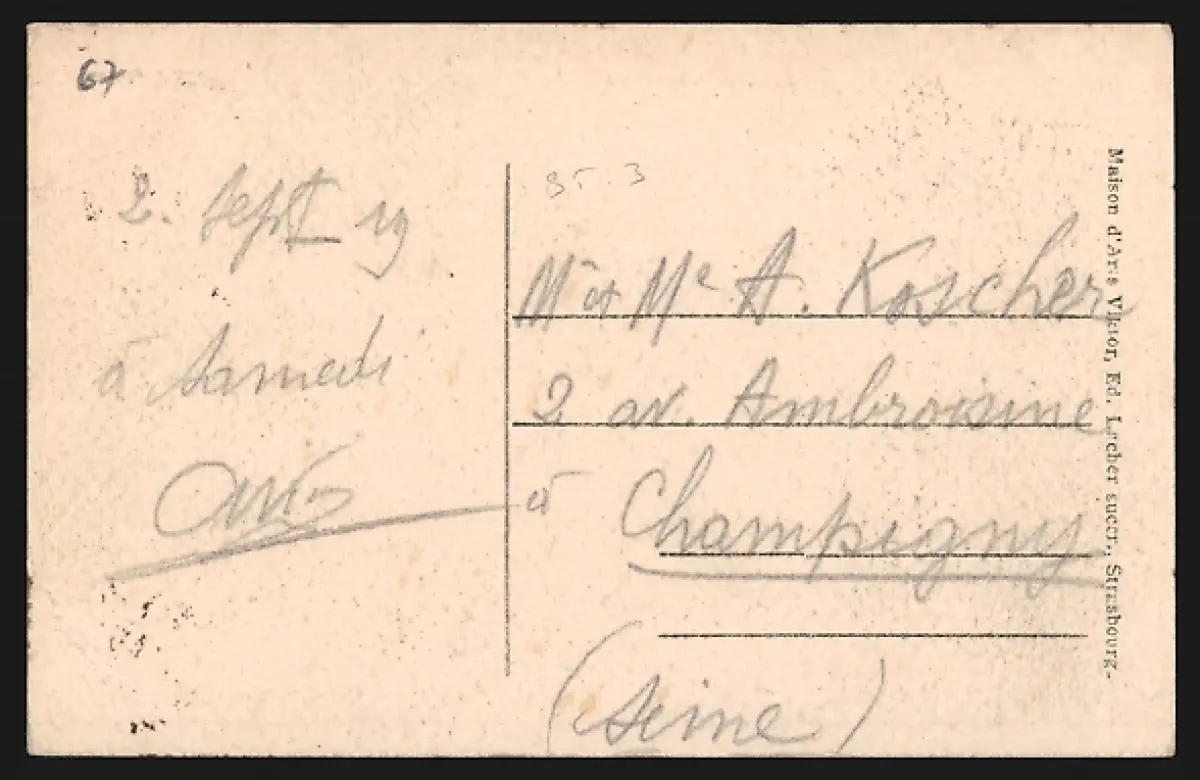 67
2. Sept 19
à Samedi
95.3
Mr et Me A. Koscher
2 av. Ambroisine
à Champigny
(Seine)
Maison d'Arts Viktor, Ed. Lecher succr., Strasbourg.